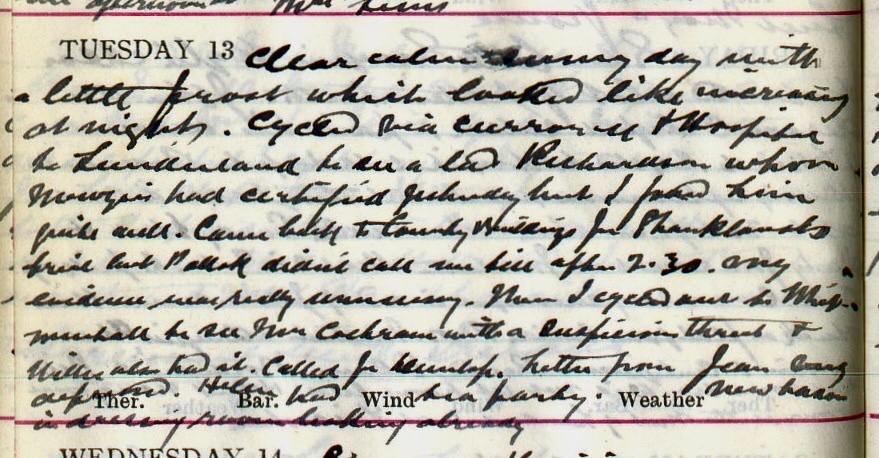 afternoon Mrs
TUESDAY 13 Clear calm sunny day with
a little frost which looked like increasing
at nights. Cycled via Curror St & Hospital
to Sunderland to see a lad Richardson whom
had certified yesterday but I found him
quite well. Came back to County Buildings for Shanklands
trial but Pollok didn't call me till after 2.30. My
evidence was really unnecessary. Then I cycled out to
to see Mrs Cochrane with a suspicious throat &
also had it. Called for Dunlop. Letter from Jean
depressed. Helen had tea party. New basin
Ther. Bar. Wind Weather
in dressing room leaking already
WEDNESDAY 14